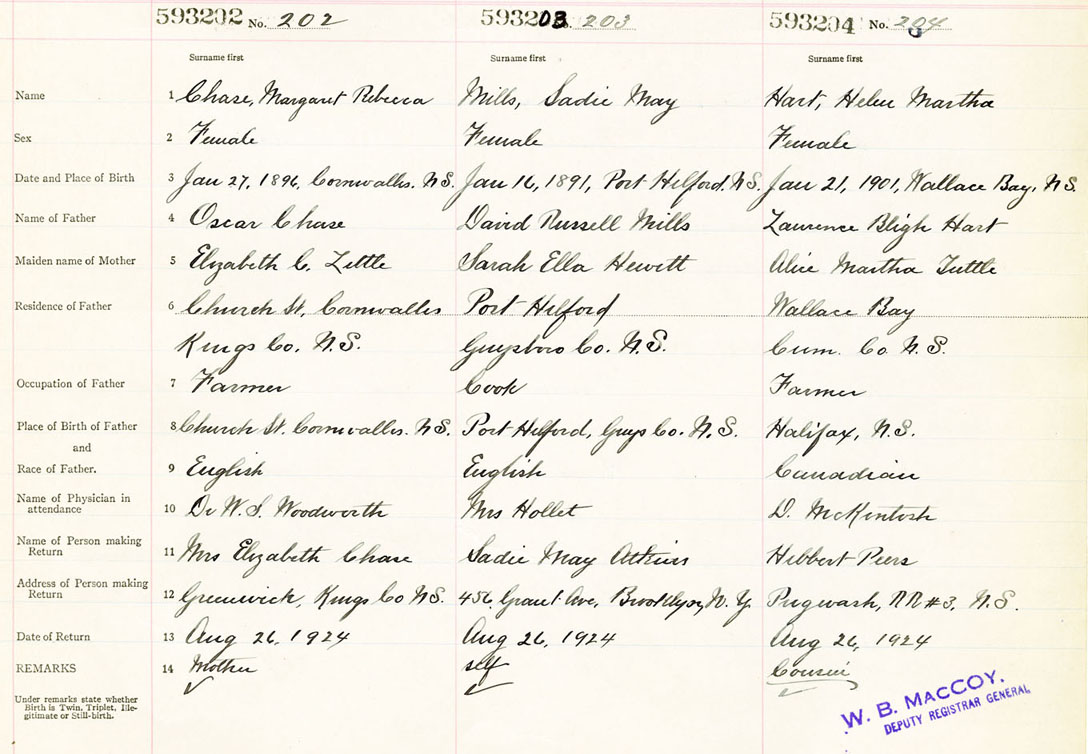 593202 No. 202 593203 No. 203 593204 No. 204
Surname first Surname first Surname first
Name 1 Chase, Margaret Rebecca Mills, Sadie May Hart, Helen Martha
Sex 2 Female Female Female
Date and Place of Birth 3 Jan 27, 1896, Cornwallis. N.S. Jan 16, 1891, Port Hilford, N.S. Jan 21, 1901, Wallace Bay, N.S.
Name of Father 4 Oscar Chase David Russell Mills Laurence Bligh Hart
Maiden name of Mother 5 Elizabeth C. Sarah Ella Hewitt Alice Martha Tuttle
Residence of Father 6 Church St, Cornwallis Port Hilford Wallace Bay
Kings Co. N.S. Guysboro Co. N.S. Cum. Co N.S.
Occupation of Father 7 Farmer Cook Farmer
Place of Birth of Father 8 Church St. Cornwallis. N.S. Port Hilford, Guys Co. N.S. Halifax, N.S.
and
Race of Father. 9 English English Canadian
Name of Physician in
attendance 10 Dr W. S. Woodworth Mrs Hollet D. McKintosh
Name of Person making
Return 11 Mrs Elizabeth Chase Sadie May Atkins Hibbert Peers
Address of Person making
Return 12 Greenwich, Kings Co N.S. 456, Grant Ave, Brooklyn, N.Y. Pugwash, RR#3, N.S.
Date of Return 13 Aug 26, 1924 Aug 26, 1924 Aug 26, 1924
REMARKS 14 Mother self Cousin
Under remarks state whether
Birth is Twin, Triplet, Ille-
gitimate or Still-birth.
W. B. MACCOY.
DEPUTY REGISTRAR GENERAL